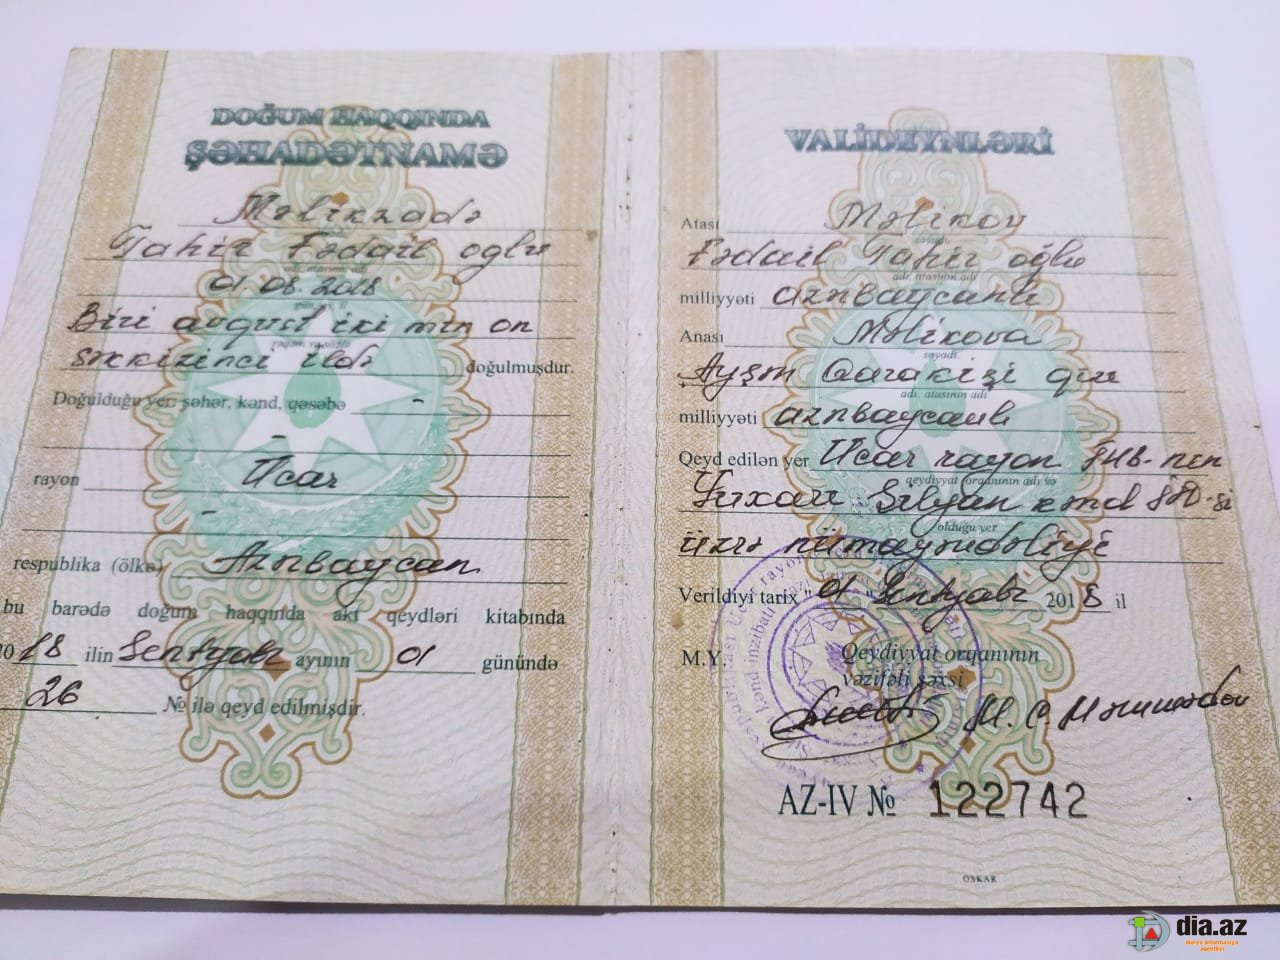 DOĞUM HAQQINDA
ŞƏHADƏTNAMƏ
Məlikzadə
Tahir Fədail oğlu
adı, atasının adı
01.08.2018
gün, ay, il
Biri avqust iki min on
rəqəm və sözlə
səkkizinci ildə doğulmuşdur.
Doğulduğu yer: şəhər, kənd, qəsəbə -
-
rayon Ucar
-
respublika (ölkə) Azərbaycan
bu barədə doğum haqqında akt qeydləri kitabında
2018 ilin Sentyabr ayının 01 günündə
26 № ilə qeyd edilmişdir.
VALİDEYNLƏRİ
Atası Məlikov
soyadı,
Fədail Tahir oğlu
adı, atasının adı
milliyyəti azərbaycanlı
Anası Məlikova
soyadı,
Qarakişi qızı
adı, atasının adı
milliyyəti azərbaycanlı
Qeyd edilən yer Ucar rayon
qeydiyyat orqanının adı və
Yuxarı Şilyan kənd
olduğu yer
üzrə nümayəndəliyi
Verildiyi tarix "01" Sentyabr 2018 il
M.Y. Qeydiyyat orqanının
vəzifəli şəxsi
M. Məmmədov
AZ-IV № 122742
OSKAR
dia.az
dünya informasiya
agentliyi